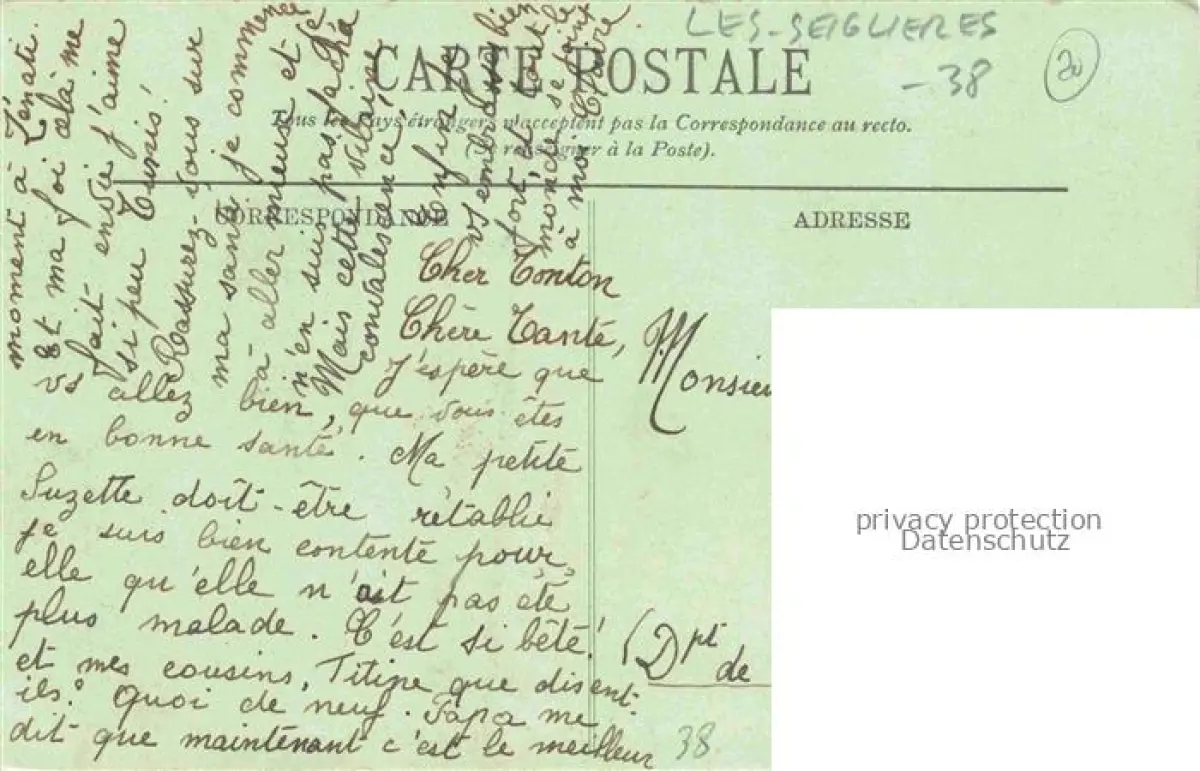 LES-SEIGLIERES
-38
20
CARTE POSTALE
Tous les Pays étrangers n'acceptent pas la Correspondance au recto.
(Se renseigner à la Poste).
CORRESPONDANCE
ADRESSE
Cher Tonton
Chère Tante,
J'espère que
vs allez bien, que vous êtes
en bonne santé. Ma petite
Suzette doit-être rétablie
je suis bien contente pour
elle qu'elle n'ait pas été
plus malade. C'est si bête!
et mes cousins, Titine que disent-
ils? Quoi de neuf. Papa me
dit que maintenant c'est le meilleur
moment à Zénati.
Et ma foi celà me
fait envie j'aime
si peu Tunis!
Rassurez-vous sur
ma santé je commence
à aller mieux et je
n'en suis pas fachée
Mais cette vilaine
convalescence!
Enfin je
vs embrasse bien
fort, et tout le
monde se joint
à moi Claire
Monsieu
(Dpt de
38
privacy protection
Datenschutz